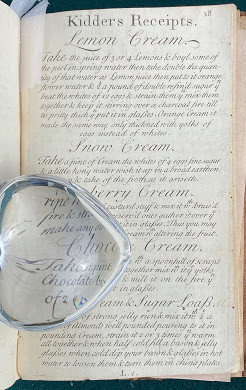 18
Kidders Receipts.
Lemon Cream.
Take the juice of 3 or 4 Lemons & boyl some of
the peel in spring water then take double the quan
tity of that water as Lemon juice then put to it orange
flower water & a pound of double refin'd sugar yn
beat the whites of 12 eggs & strain them yn mix them
together & keep it stirring over a charcoal fire till
tis pritty thick yn put it in glasses Orange Cream is
made the same way only thicken'd with yolks of
eggs instead of whites
Snow Cream.
Take a pint of Cream the whites of 9 eggs fine sugar
& a little hony water wisk it up in a broad earthen
& take of the froth as it ariseth.
Cherry Cream.
ripe
custard stuff & mix it
fire & str
gather it over
make any
in glasses Thus you
Cream by altering the fruit.
Choco
Cream.
Take
a spoonfull of scrapt
a quart
Chocolate bo
together mix
yolks
of 2
mill it on the fire
in glasses
Cream & Sugar Loafs.
of strong jelly rank & mix
a
of Almonds well pounded pouring to it
pound'd Cream, strain it 2 or 3 times
warm
all together & when half cold fill a bason & jelly
glasses when cold dip your bason & glasses in hot
water to loosen them & turn them on china plates.
L. 2.